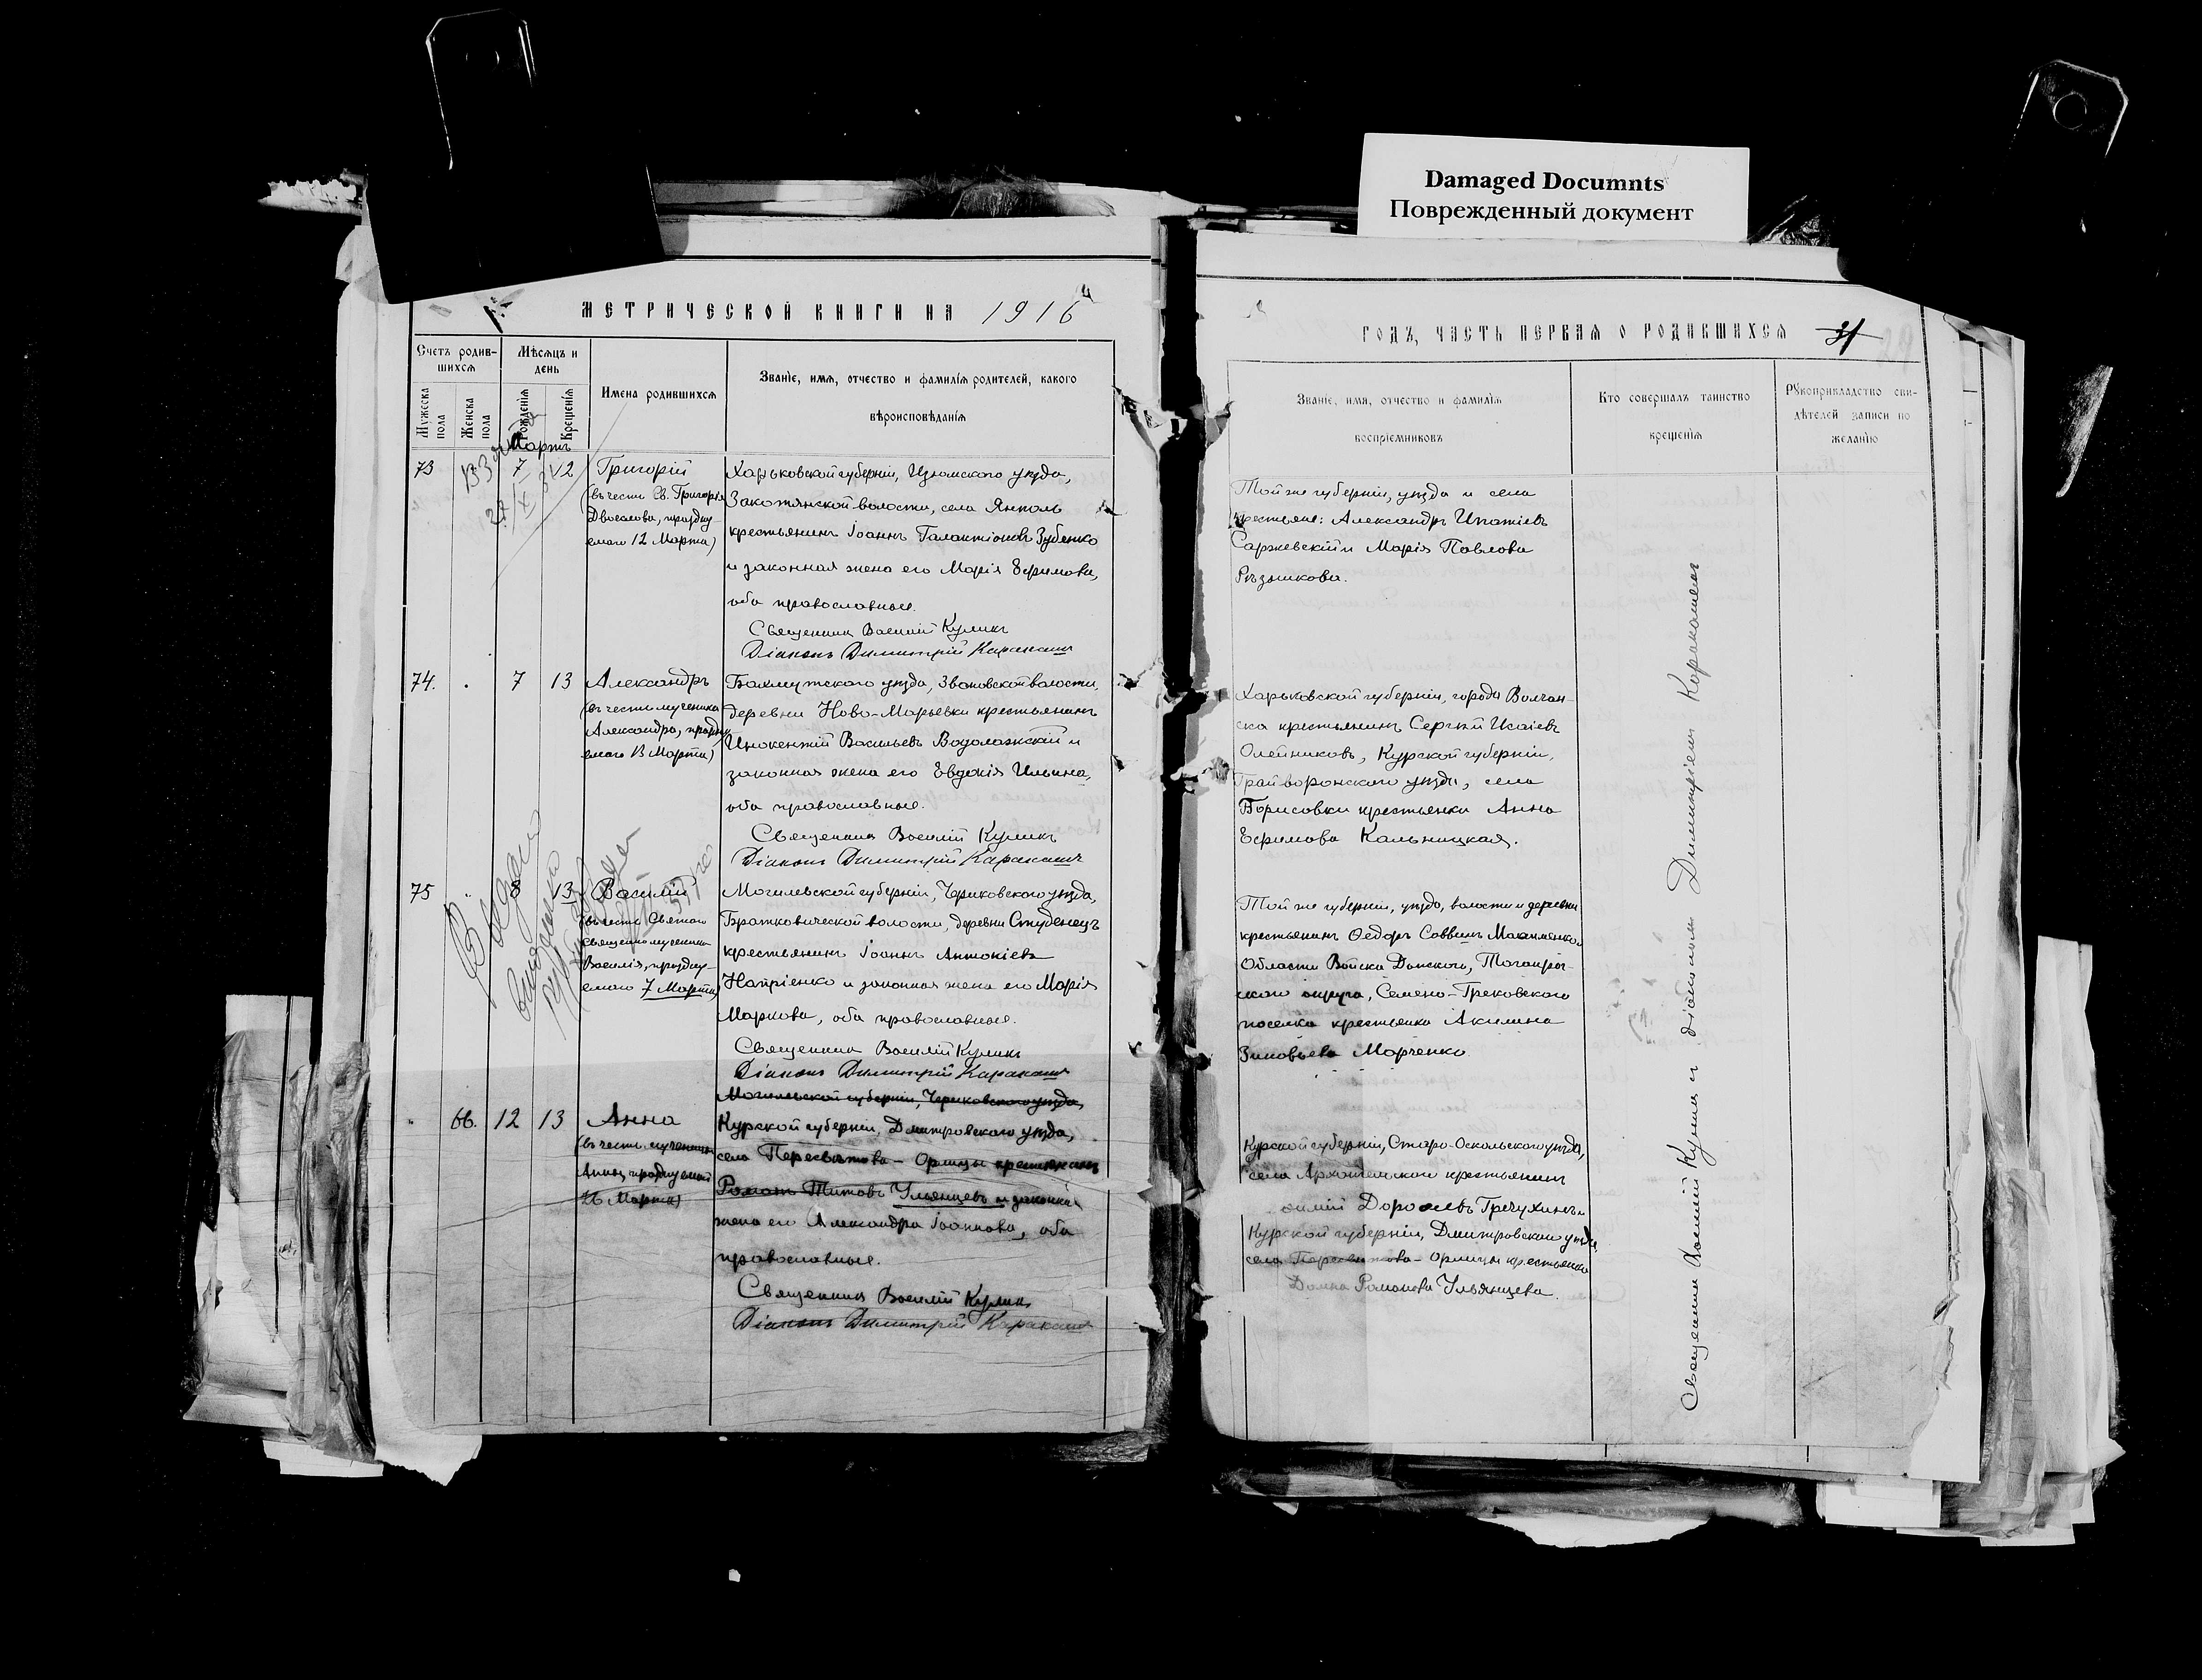 Damaged Documnts
Поврежденный документ
МЕТРИЧЕСКОЙ КНИГИ НА 1916
Счетъ родив-
шихся
Мѣсяцъ и
день
Мужеска
пола
Женска
пола
Рожденія
Крещенія
Имена родившихся
Званіе, имя, отчество и фамилія родителей, какого
вѣроисповѣданія
Мартъ
73 7 12 Григорій
(въ честь Св. Григорія
Двоеслова, праздну-
емаго 12 Марта)
Харьковской губерніи, Изюмского уѣзда,
Закотянской волости, села Ямполь
крестьянинъ Іоаннъ Галактіоновъ Зубенко
и законная жена его Марія Ефимова,
оба православные.
Священникъ Василій Куликъ
Діаконъ Димитрій Каракашъ
74. 7 13 Александръ
(въ честь мученика
Александра, праздну
емаго 13 Марта)
Бахмутского уѣзда, Звановской волости,
деревни Ново-Марьевки крестьянинъ
Инокентій Васильевъ Водолажскій и
законная жена его Евдокія Ильина,
оба православные.
Священникъ Василій Куликъ
Діаконъ Димитрій Каракашъ
75 8 13 Василій
(въ честь Святаго
Священномученика
Василія, праздну-
емаго 7 Марта)
Могилевской губерніи, Чериковского уѣзда,
Братковической волости, деревни Студенецъ
крестьянинъ Іоаннъ Антоніевъ
Напріенко и законная жена его Марія
Маркова, оба православные.
Священникъ Василій Куликъ
Діаконъ Димитрій Каракашъ
Могилевской губерніи, Чериковского уѣзда,
66. 12 13 Анна
(въ честь мученицы
Анны, празднуемой
26 Марта)
Курской губерніи, Дмитровского уѣзда,
села Пересвѣтова-Орлицы крестьянинъ
Романъ Титовъ Ульянцевъ и законная
жена его Александра Іоаннова, оба
православные.
Священникъ Василій Куликъ
Діаконъ Димитрій Каракашъ
ГОДЪ, ЧАСТЬ ПЕРВАЯ О РОДИВШИХСЯ 31
Званіе, имя, отчество и фамилія
воспріемниковъ
Кто совершалъ таинство
крещенія
Рукоприкладство сви-
дѣтелей записи по
желанію
Той же губерніи, уѣзда и села
крестьяне: Александръ Ипатіевъ
Саржевскій и Марія Павлова
Рѣзникова.
Харьковской губерніи, города Волчан-
ска крестьянинъ Сергій Исаіевъ
Олейниковъ, Курской губерніи,
Грайворонского уѣзда, села
Борисовки крестьянка Анна
Ефимова Кальницкая.
Той же губерніи, уѣзда, волости и деревни
крестьянинъ Ѳедоръ Саввинъ Максименко
Области Войска Донского, Таганрог-
ского округа, Семено-Грековского
поселка крестьянка Акилина
Зиновьева Марченко
Курской губерніи, Старо-Оскольского уѣзда,
села крестьянинъ
Дороѳеевъ Гречухинъ и
Курской губерніи, Дмитровского уѣзда,
села Пересвѣтова-Орлицы крестьянка
Домна Романова Ульянцева.
Священникъ Василій Куликъ съ діакономъ Димитріемъ Каракашемъ